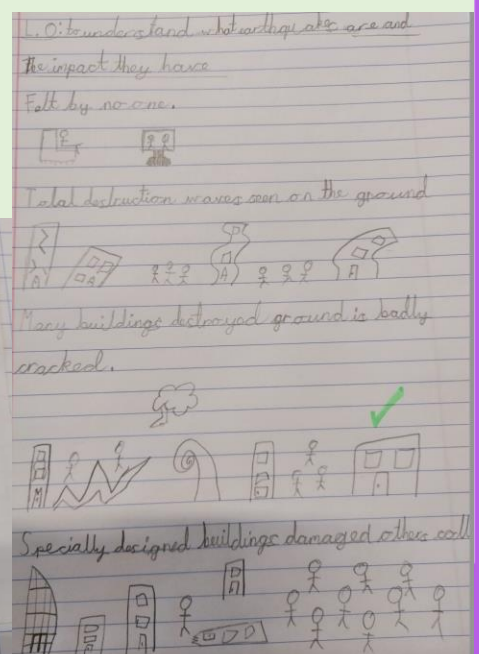 L.O: to understand what earthquakes are and
the impact they have
Felt by no one.
Total destruction waves seen on the ground
Many buildings destroyed ground is badly
cracked.
Specially designed buildings damaged others coll